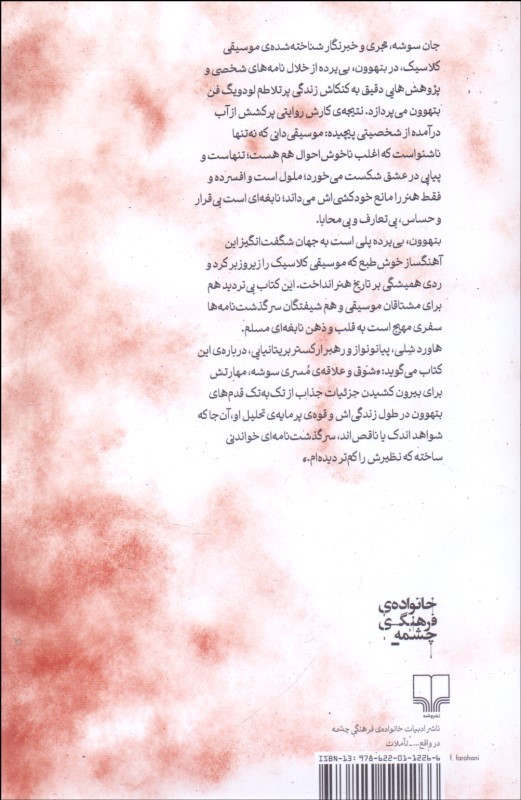 جان سوشه، مجری و خبرنگار شناخته‌شده‌ی موسیقی
کلاسیک، در بتهوون، بی‌پرده از خلال نامه‌های شخصی و
پژوهش‌هایی دقیق به کنکاش زندگی پرتلاطم لودویگ فن
بتهوون می‌پردازد. نتیجه‌ی کارش روایتی پرکشش از آب
درآمده از شخصیتی پیچیده: موسیقی‌دانی که نه‌تنها
ناشنواست که اغلب ناخوش‌احوال هم هست؛ تنهاست و
پیاپی در عشق شکست می‌خورد؛ ملول است و افسرده و
فقط هنر را مانع خودکشی‌اش می‌داند؛ نابغه‌ای است بی‌قرار
و حساس، بی‌تعارف و بی‌محابا.
بتهوون، بی‌پرده پلی است به جهان شگفت‌انگیز این
آهنگساز خوش‌طبع که موسیقی کلاسیک را زیروزبر کرد و
ردی همیشگی بر تاریخ هنر انداخت. این کتاب بی‌تردید هم
برای مشتاقان موسیقی و هم شیفتگان سرگذشت‌نامه‌ها
سفری مهیج است به قلب و ذهن نابغه‌ای مسلم.
هاورد شلی، پیانونواز و رهبر ارکستر بریتانیایی، درباره‌ی این
کتاب می‌گوید: «شوق و علاقه‌ی مُسری سوشه، مهارتش
برای بیرون کشیدن جزئیات جذاب از تک‌به‌تک قدم‌های
بتهوون در طول زندگی‌اش و قوه‌ی پرمایه‌ی تحلیل او، آن‌جا که
شواهد اندک یا ناقص‌اند، سرگذشت‌نامه‌ای خواندنی
ساخته که نظیرش را کم‌تر دیده‌ام.»
خانواده‌ی
فرهنگی
چشمه
نشرچشمه
ناشر ادبیات خانواده‌ی فرهنگی چشمه
در واقع...ـ تأملات
ISBN-13: 978-622-01-1226-6
f. farahani